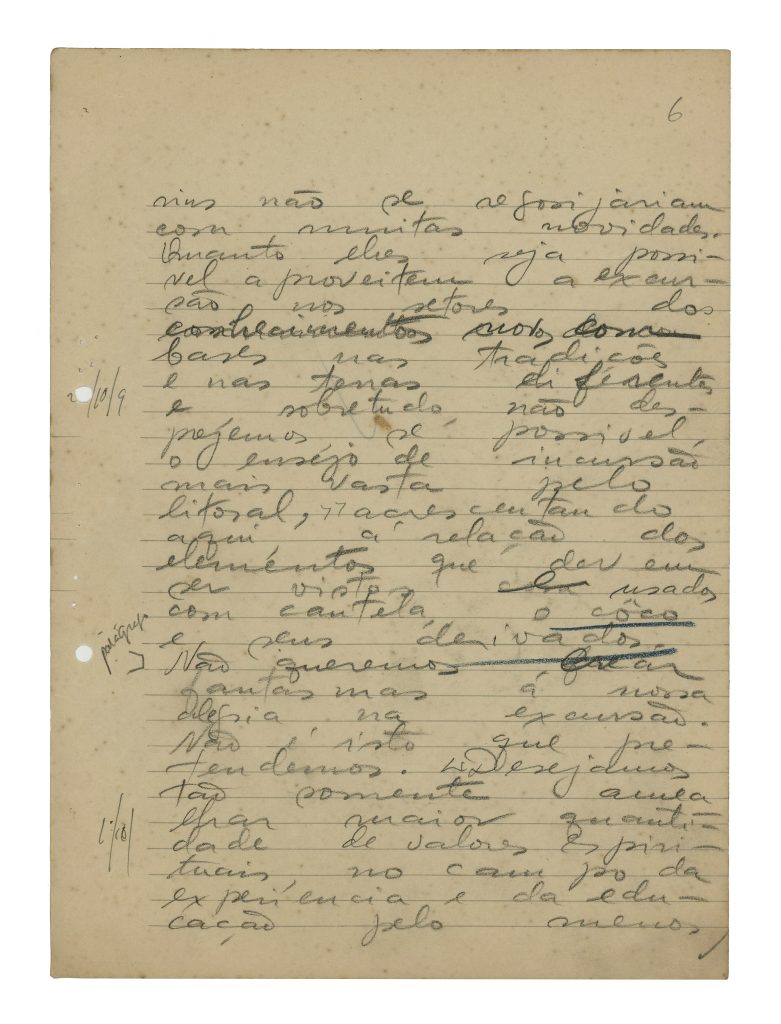 6
nius não se regosijariam
com muitas novidades.
Quanto lhes seja possi-
vel aproveitem a excur-
são nos setores dos
conhecimentos novos como
bases nas tradições
e nas terras diferentes
2 /10/9
e sobretudo não des-
prejemos se possivel,
o ensejo de incursão
mais vasta pelo
litoral, acrescentando
aqui á relação dos
elementos que devem
ser vistos usados
com cautela, o côco
parágrafo
e seus derivados.
Não queremos criar
fantasmas á nossa
alegria na excursão.
Não é isto que pre-
tendemos. Desejamos
tão somente amea
lhar maior quanti-
dade de valores Espiri-
tuais, no campo da
experiencia e da edu-
cação pelo menos